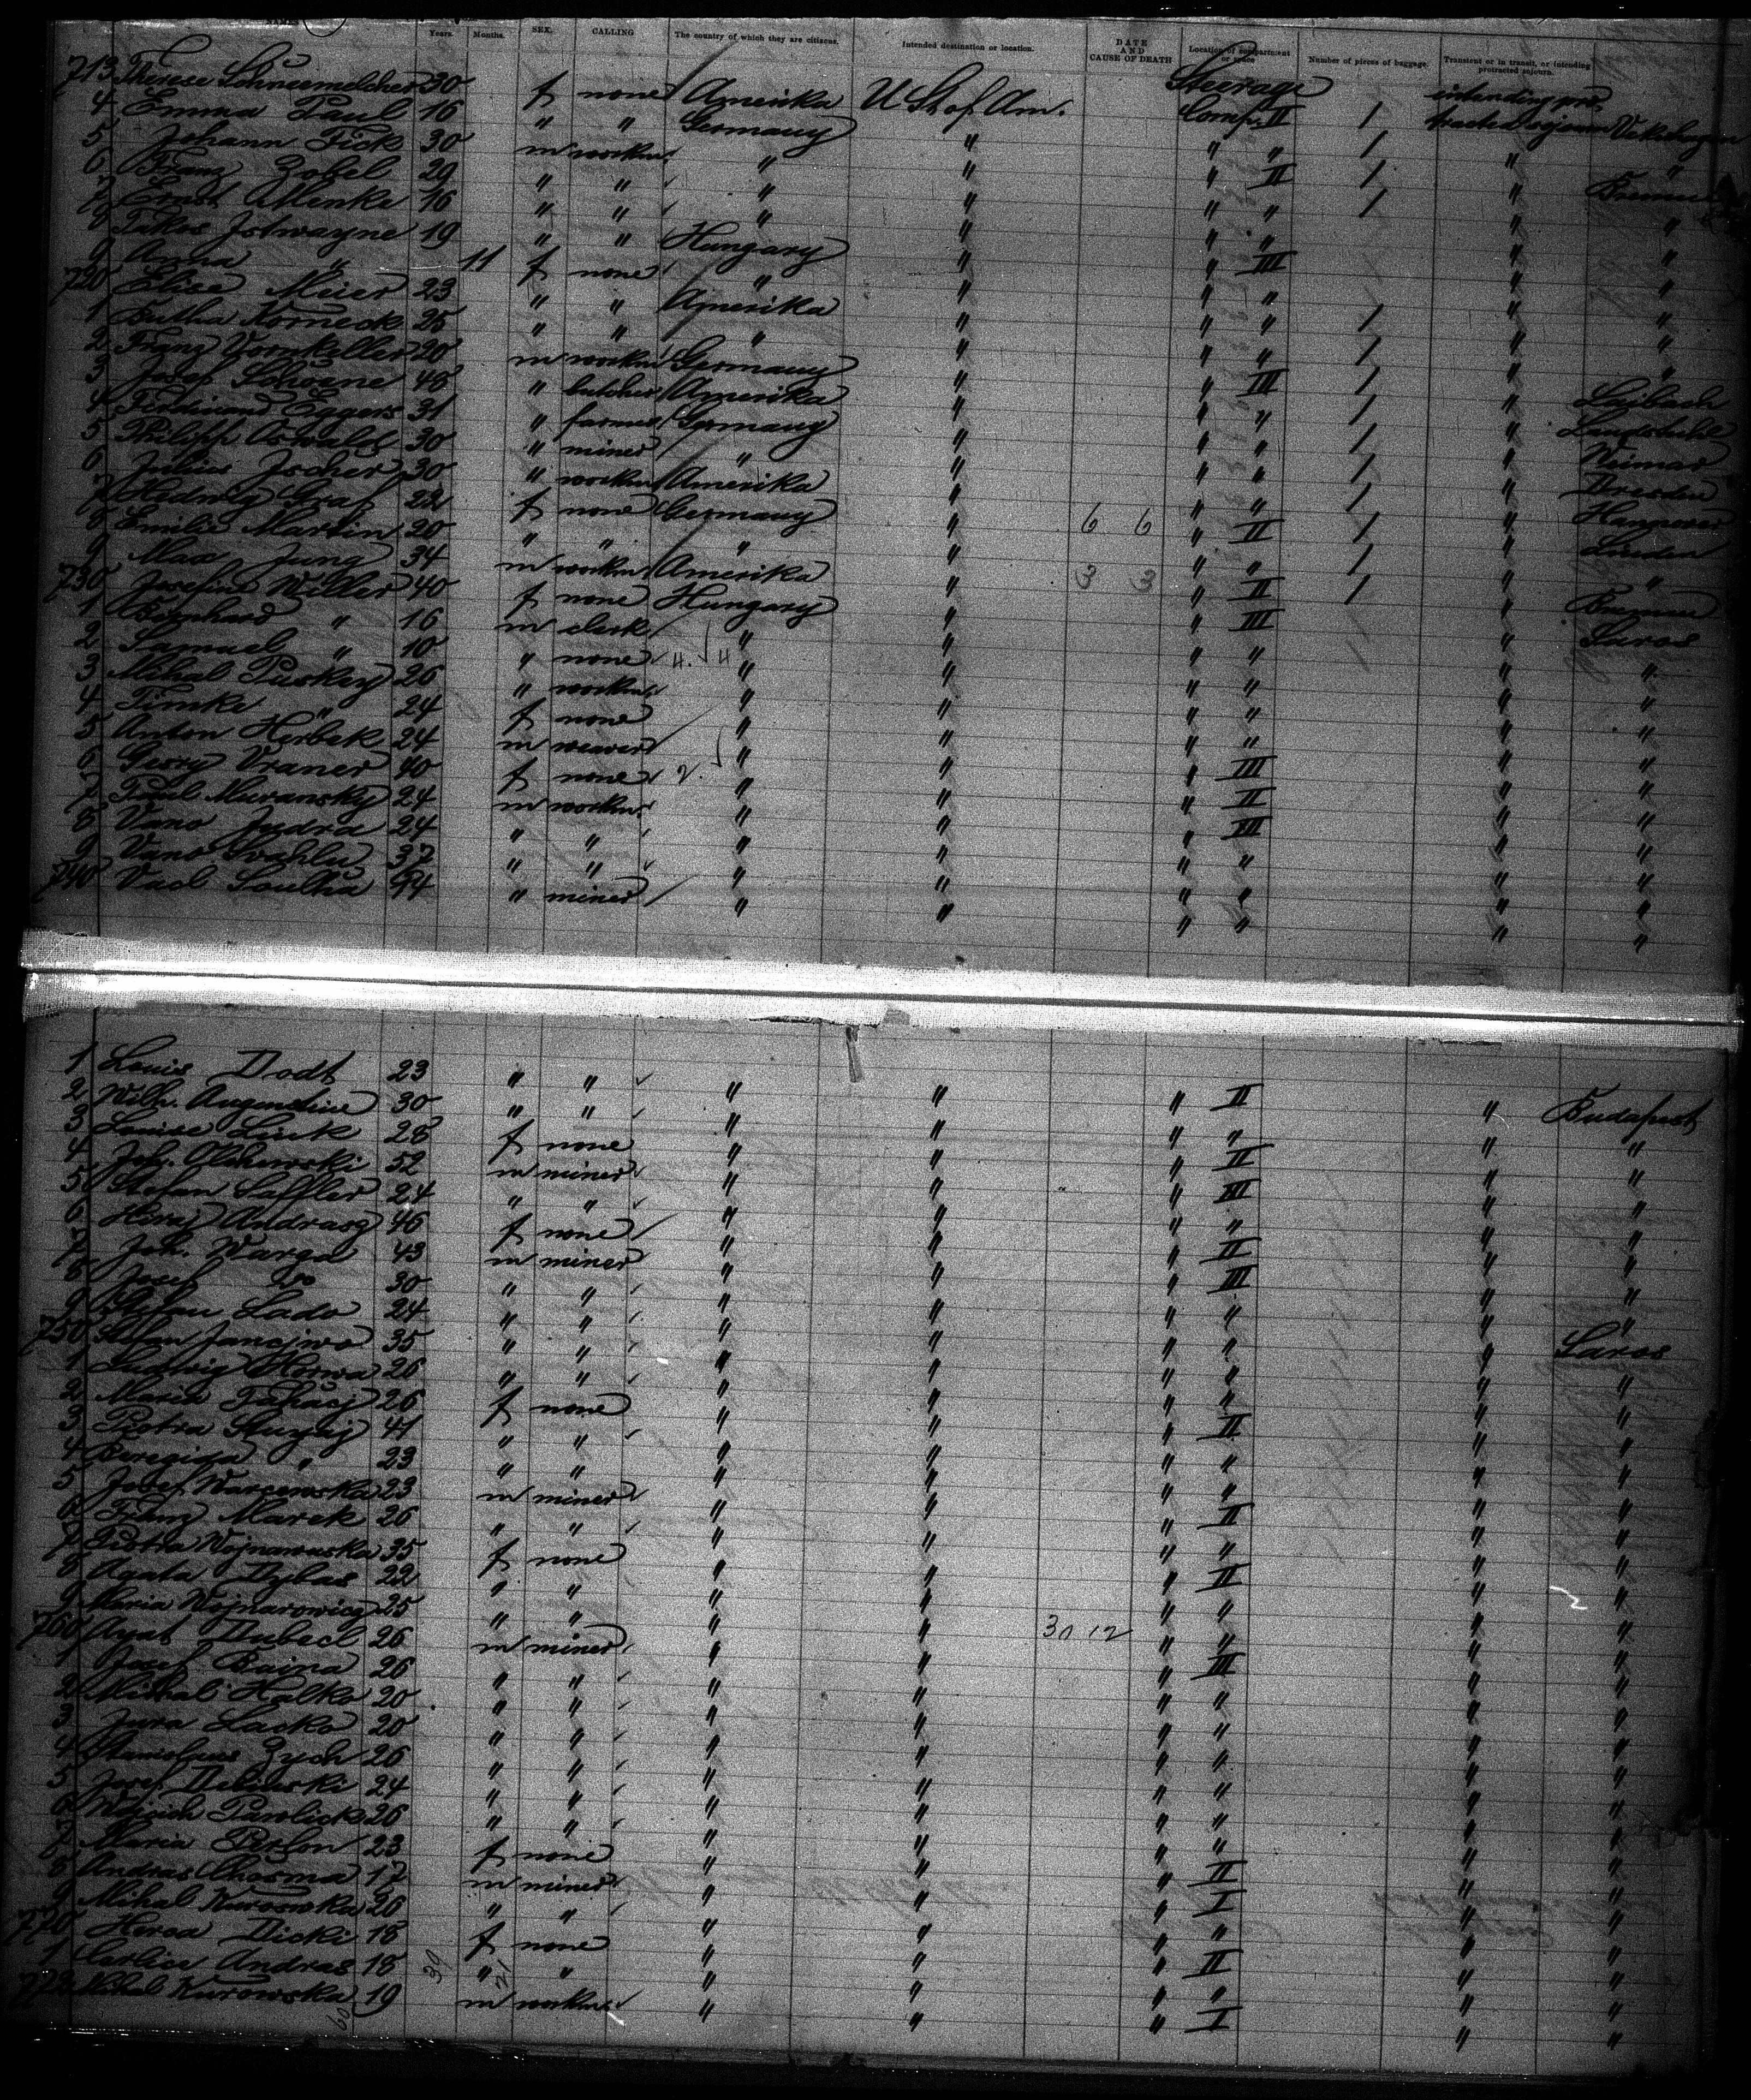 NAMES Years. Months. SEX. CALLING The country of which they are citizens. Intended destination or location. DATE AND CAUSE OF DEATH Location of compartment or space Number of pieces of baggage. Transient or in transit, or intending protracted sojourn.
713 Therese Schneemelcher 30 f none Amerika U St of Am. Steerage Comp. II 1 intending protracted sojourn
4 Emma Paul 16 " " Germany " " " 1 " "
5 Johann Fick 30 m workm. " " " II 1 " Bremen
6 Franz Zobel 29 " " " " " " 1 " "
7 Ernst Menke 16 " " " " " " " "
8 Takos Istwayne 19 " " Hungary " " III " "
9 Anna " 11 f none " " " " " "
720 Elise Meier 23 " " Amerika " " " 1 " "
1 Bertha Korneck 25 " " " " " " 1 " "
2 Franz Vornkeller 20 m workm Germany " " III 1 " Laibach
3 Josef Schoene 48 " butcher Amerika " " " 1 "
4 Ferdinand Eggers 31 " farmer Germany " " " 1 " Weimar
5 Philipp Oswald 30 " miner " " " " 1 " Dresden
6 Julius Ischer 30 " workm Amerika " " " 1 " Hannover
7 Hedwig Graf 22 f none Germany " 6 6 " II 1 " Linden
8 Emilie Martin 20 " " " " " " 1 " "
9 Max Jung 34 m workm Amerika " 3 3 " II 1 " Bremen
730 Josefine Willer 40 f none Hungary " " III " Saros
1 Bernhard " 16 m clerk " " " " " "
2 Samuel " 10 " none 4. 4 " " " " " "
3 Mihal Puskey 26 " workm. " " " " " "
4 Timke " 24 f none " " " " " "
5 Anton Herbek 24 m weaver " " " III " "
6 Georg Vraner 40 f none 2. " " " II " "
7 Paul Muransky 24 m workm. " " " III " "
8 Vano Jydra 24 " " " " " " " "
9 Vano 37 " " " " " " " "
740 Vaol Soulka 44 " miner " " " " " "
1 Louis Dodt 23 " " " " " II " Budapest
2 Wilh. Augustine 30 " " " " " " " "
3 Louise Link 28 f none " " " II " "
4 Joh. Olschewski 52 m miner " " " III " "
5 Stefan Saffler 24 " " " " " " " "
6 Andrasy 46 f none " " " II " "
7 Joh. Warga 43 m miner " " " III " "
8 Josef do 30 " " " " " " " "
9 Stefan Lado 24 " " " " " " " Saros
750 35 " " " " " " " "
1 Ludwig Horwa 26 " " " " " " " "
2 Maria 26 f none " " " II " "
3 Piotra 41 " " " " " " " "
4 " 23 " " " " " " " "
5 Josef Warcewska 23 m miner " " " II " "
6 Franz Marek 26 " " " " " " " "
7 Piotra Wojnarowska 35 f none " " " II " "
8 Agata Dybas 22 " " " " " " " "
9 Maria Wojnarowicz 25 " " " " 30 12 " " " "
760 Dubecl 26 m miner " " " III " "
1 Josef Baina 26 " " " " " " " "
2 Michal Halko 20 " " " " " " " "
3 Jura Lacko 20 " " " " " " " "
4 Stanislaus Zych 26 " " " " " " " "
5 Josef 24 " " " " " " " "
6 26 " " " " " " " "
7 Maria 23 f none " " " II " "
8 Andras 17 m miner " " " I " "
9 Mihal Kurowska 20 " " " " " " " "
770 Dicki 18 f none " " " II " "
1 Andras 18 " " " " " " " "
772 Mihal Kurowska 19 m workm. " " " I " "
60 39 21